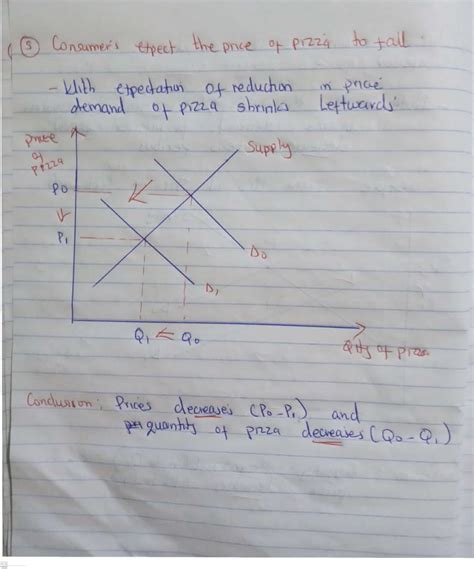 (3) Consumer's expect the price of pizza to fall.
- With expectation of reduction in price
demand of pizza shrinks leftwards
price
of
pizza
Supply
P0
P1
D0
D1
Q1 ⇐ Q0
Qty of pizza
Conclusion: Prices decreases (P0 - P1) and
quantity of pizza decreases (Q0 - Q1)